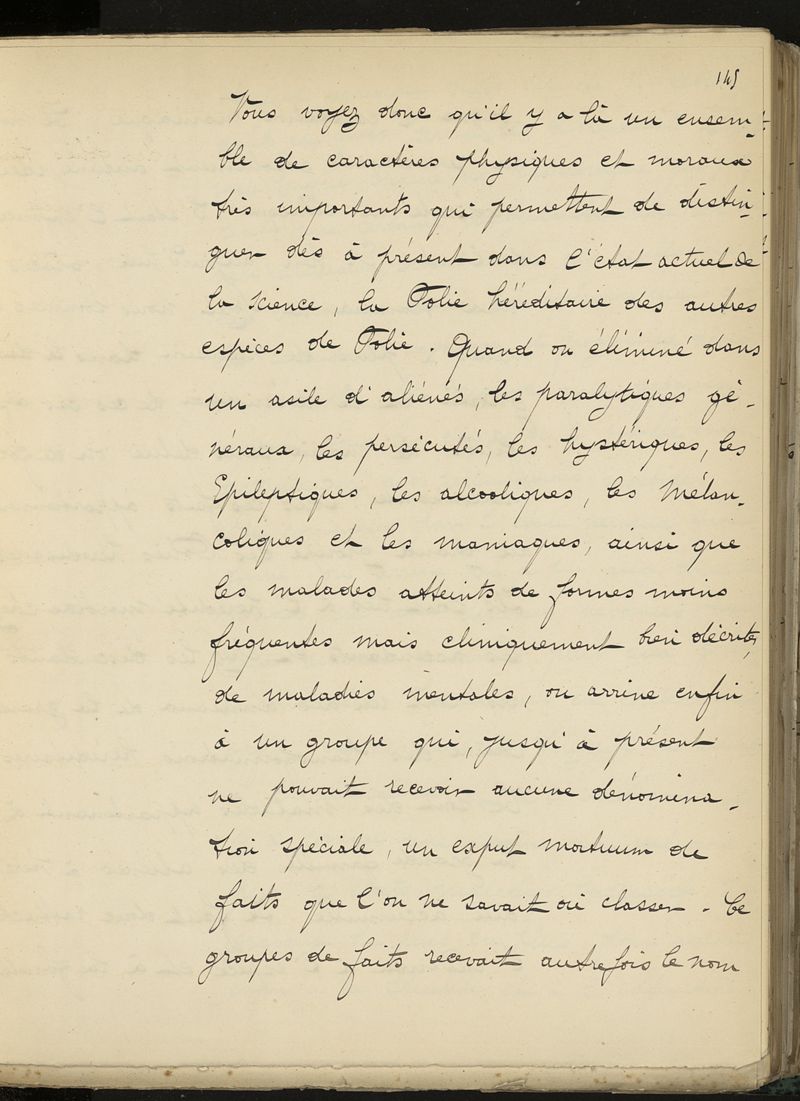 145
Vous voyez donc qu'il y a là un ensem-
ble de caractères physiques et moraux
très importants qui permettent de distin-
guer dès à présent dans l'état actuel de
la science, la Folie héréditaire des autres
espèces de Folie. Quand on éliminé dans
un asile d'aliénés, les paralytiques gé-
néraux, les persécutés, les hystériques, les
Epileptiques, les alcooliques, les mélan-
coliques et les maniaques, ainsi que
les malades atteints de formes moins
fréquentes mais cliniquement bien décrites,
de maladies mentales, on arrive enfin
à un groupe qui, jusqu'à présent
ne pouvait recevoir aucune dénomina-
tion spéciale, un caput mortuum de
faits que l'on ne savait où classer. Ce
groupes de faits recevait autrefois le nom